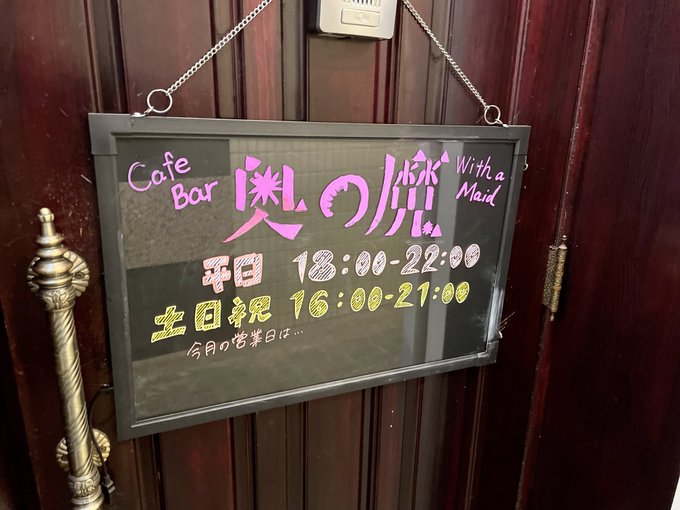 Cafe Bar 奥の魔 With a Maid
平日 18:00-22:00
土日祝 16:00-21:00
今月の営業日は…